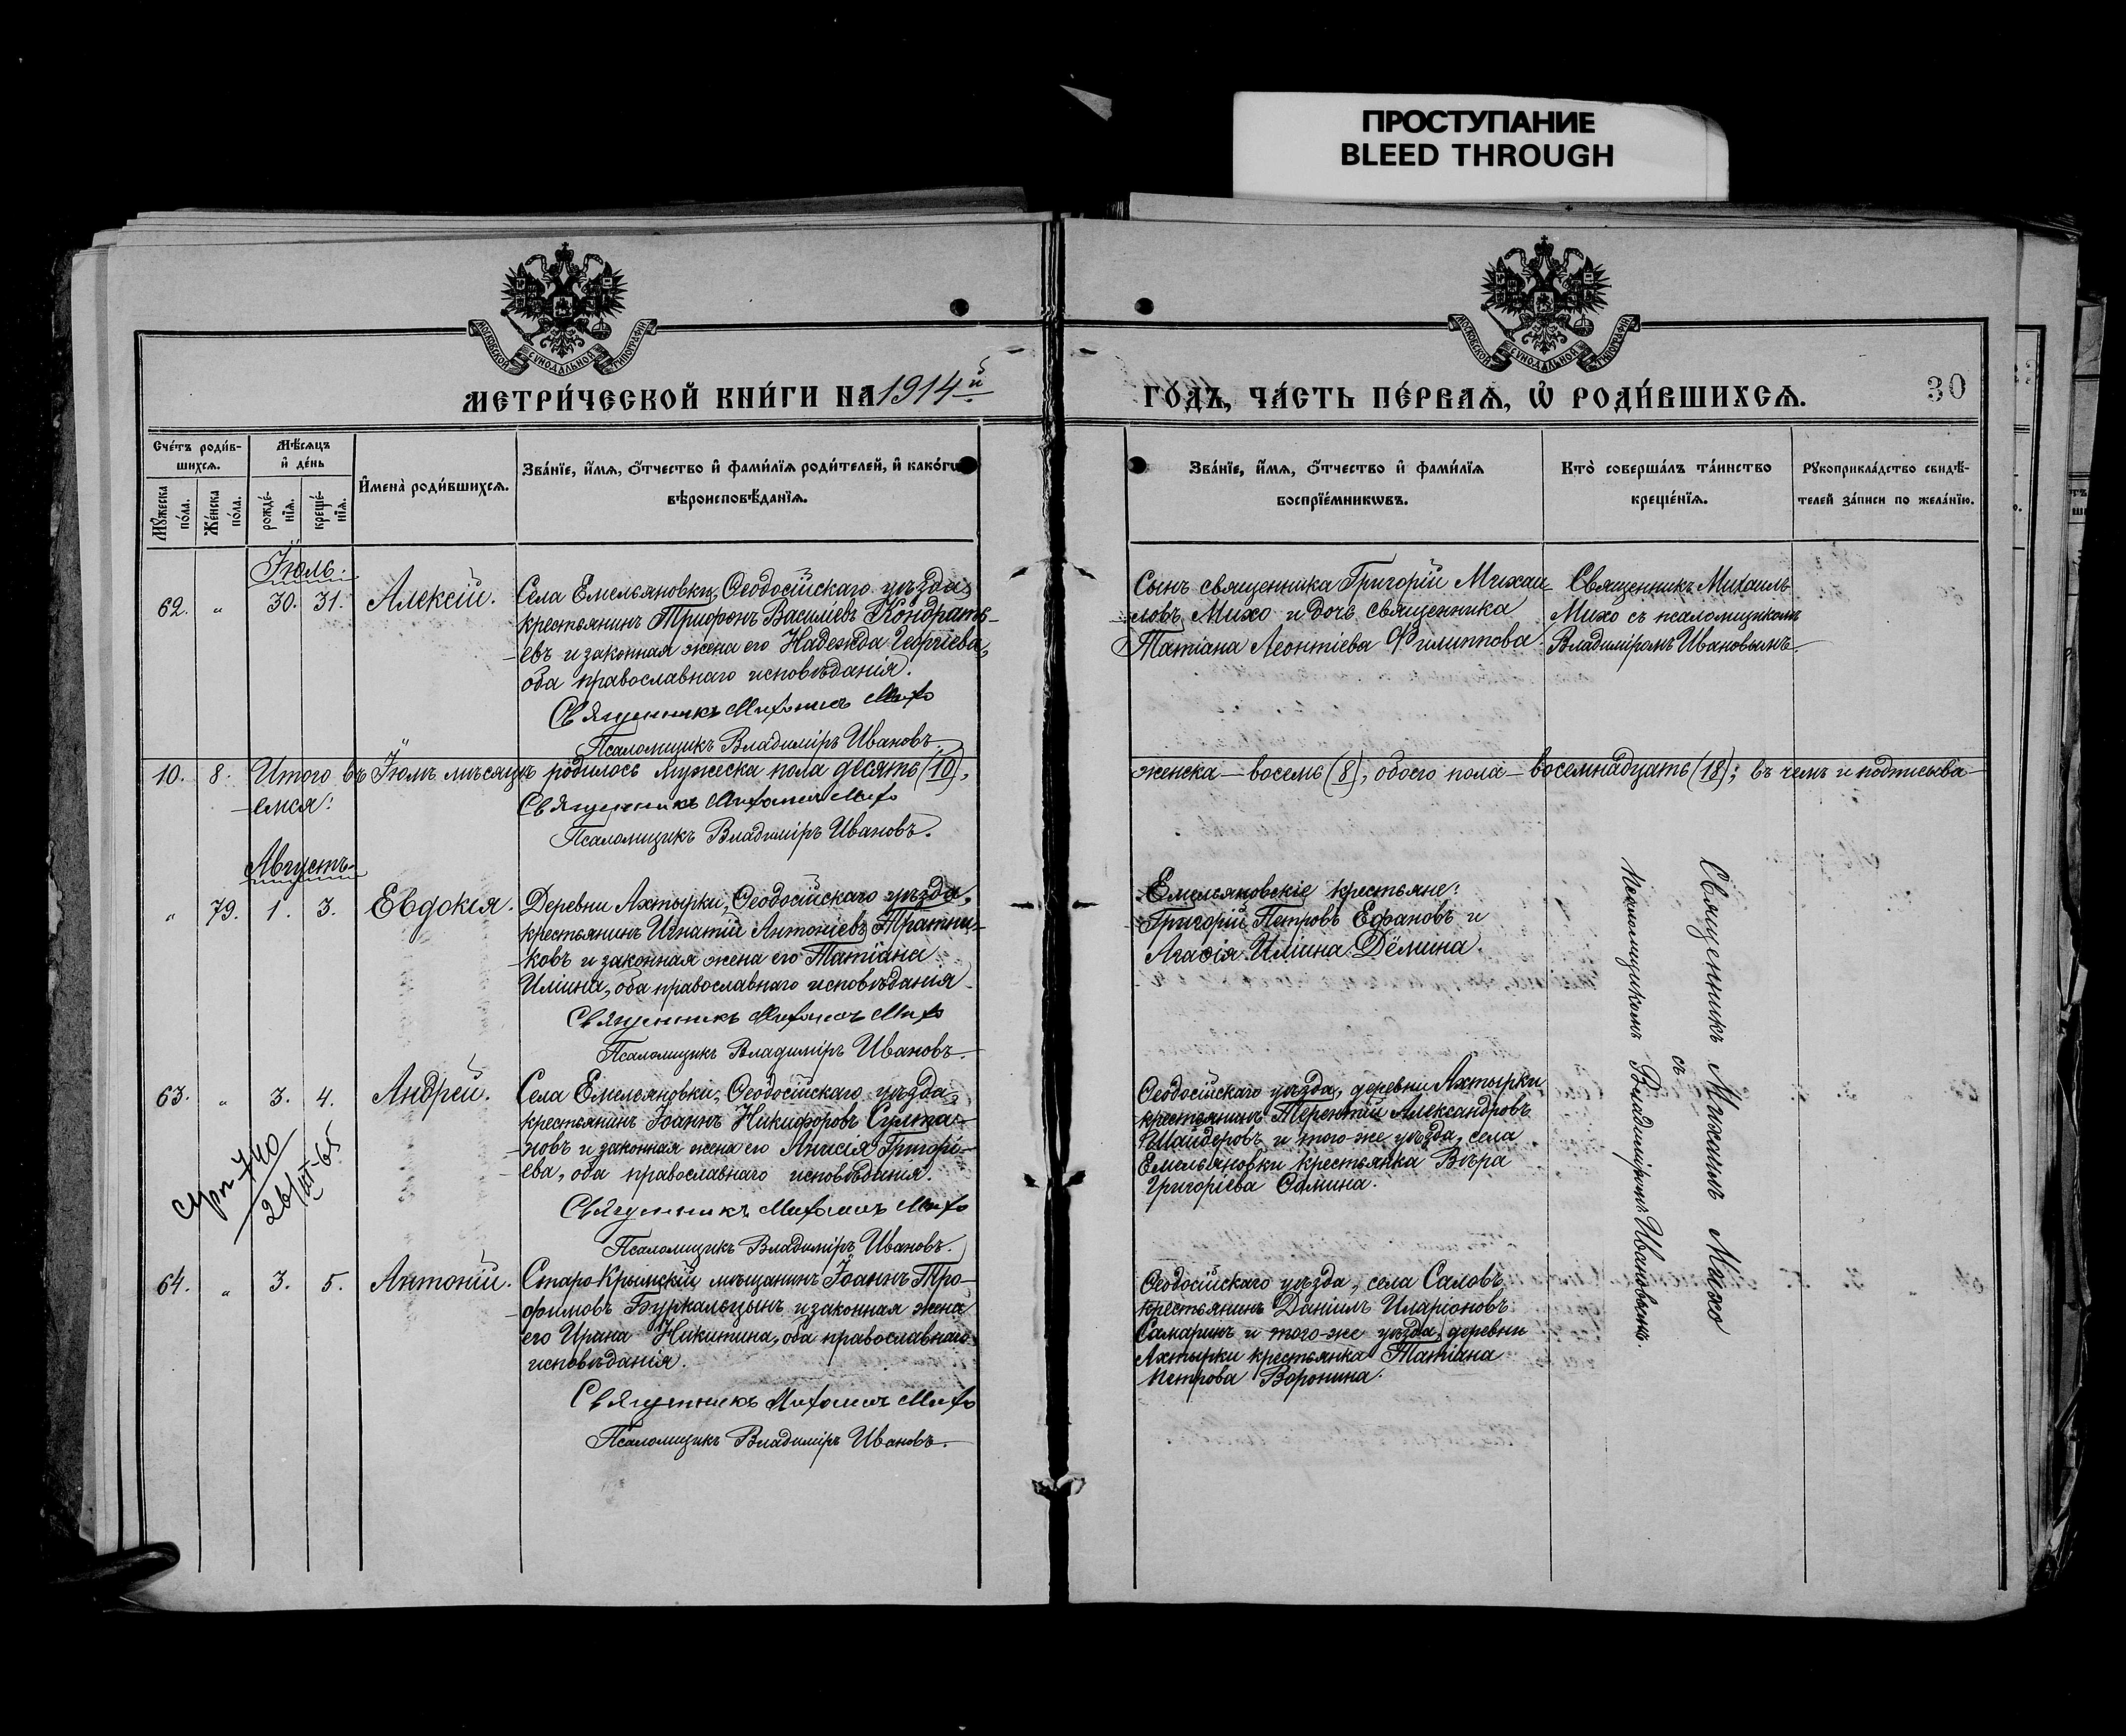 ПРОСТУПАНИЕ
BLEED THROUGH
МОСКОВСКОЙ СѴНОДАЛЬНОЙ ТИПОГРАФІИ
МОСКОВСКОЙ СѴНОДАЛЬНОЙ ТИПОГРАФІИ
МЕТРИ́ЧЕСКОЙ КНИ́ГИ НА 1914й
ГО́ДЪ, ЧА́СТЬ ПЕ́РВАѦ, Ѡ҆ РОДИ́ВШИХСѦ.
30
Сче́тъ роди́в-
шихсѧ.
Мꙋ́жеска по́ла.
Же́нска по́ла.
Мѣ́сѧцъ
и҆ де́нь
рожде́-
нїѧ.
креще́-
нїѧ.
И҆мена̀ роди́вшихсѧ.
Зва́нїе, и҆́мѧ, ѻ҆́тчество и҆ фами́лїѧ роди́телей, и҆ како́гѡ
вѣроисповѣ́данїѧ.
Зва́нїе, и҆́мѧ, ѻ҆́тчество и҆ фами́лїѧ
воспрїе́мникѡвъ.
Кто̀ соверша́лъ та́инство
креще́нїѧ.
Рꙋкоприкла́дство свидѣ́-
телей за́писи по жела́нїю.
Іюль.
62. „ 30. 31. Алексій.
Села Емельяновки, Ѳеодосійскаго уѣзда,
крестьянинъ Трифонъ Василіевъ Кондрать-
евъ и законная жена его Надежда Георгіева,
оба православнаго исповѣданія.
Священникъ Михаилъ Михо
Псаломщикъ Владиміръ Ивановъ.
Сынъ священника Григорій Михаи-
ловъ Михо и дочь священника
Татіана Леонтіева Филиппова
Священникъ Михаилъ
Михо съ псаломщикомъ
Владиміромъ Ивановымъ.
10. 8. Итого въ Іюлѣ мѣсяцѣ родилось мужеска пола десять (10),
женска – восемь (8), обоего пола – восемнадцать (18); въ чемъ и подписыва-
емся:
Священникъ Михаилъ Михо
Псаломщикъ Владиміръ Ивановъ.
Августъ.
„ 79. 1. 3. Евдокія.
Деревни Ахтырки, Ѳеодосійскаго уѣзда,
крестьянинъ Игнатій Антоніевъ Тратни-
ковъ и законная жена его Татіана
Иліина, оба православнаго исповѣданія
Священникъ Михаилъ Михо
Псаломщикъ Владиміръ Ивановъ.
Емельяновскіе крестьяне:
Григорій Петровъ Ефановъ и
Агаѳія Иліина Дёмина.
Священникъ Михаилъ Михо
съ
псаломщикомъ Владиміромъ Ивановымъ.
63. „ 3. 4. Андрей.
Села Емельяновки, Ѳеодосійскаго уѣзда,
крестьянинъ Іоаннъ Никифоровъ Султа-
новъ и законная жена его Анисія Григорі-
ева, оба православнаго исповѣданія.
Священникъ Михаилъ Михо
Псаломщикъ Владиміръ Ивановъ.
740
26/III-65
Ѳеодосійскаго уѣзда, деревни Ахтырки
крестьянинъ Терентій Александровъ
Шайдеровъ и того-же уѣзда, села
Емельяновки крестьянка Вѣра
Григоріева Ѳомина.
64. „ 3. 5. Антоній.
Старо-Крымскій мѣщанинъ Іоаннъ Тро-
фимовъ Буркальцынъ и законная жена
его Ирана Никитина, оба православнаго
исповѣданія.
Священникъ Михаилъ Михо
Псаломщикъ Владиміръ Ивановъ.
Ѳеодосійскаго уѣзда, села Саловъ
крестьянинъ Даніилъ Иларіоновъ
Самаринъ и того-же уѣзда, деревни
Ахтырки крестьянка Татіана
Петрова Воронина.